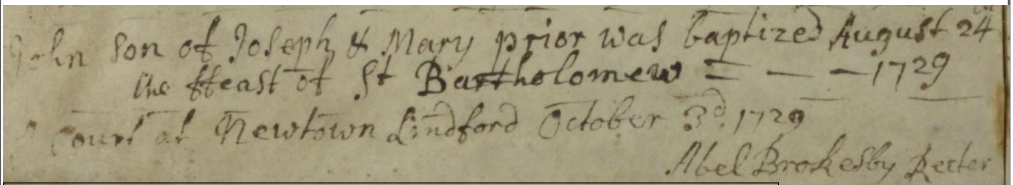 John son of Joseph & Mary prior was baptized August 24th
the ffeast of St Bartholomew = — — 1729
Court at Newtown Lindford October 3d. 1729
Abel Brokesby Recter